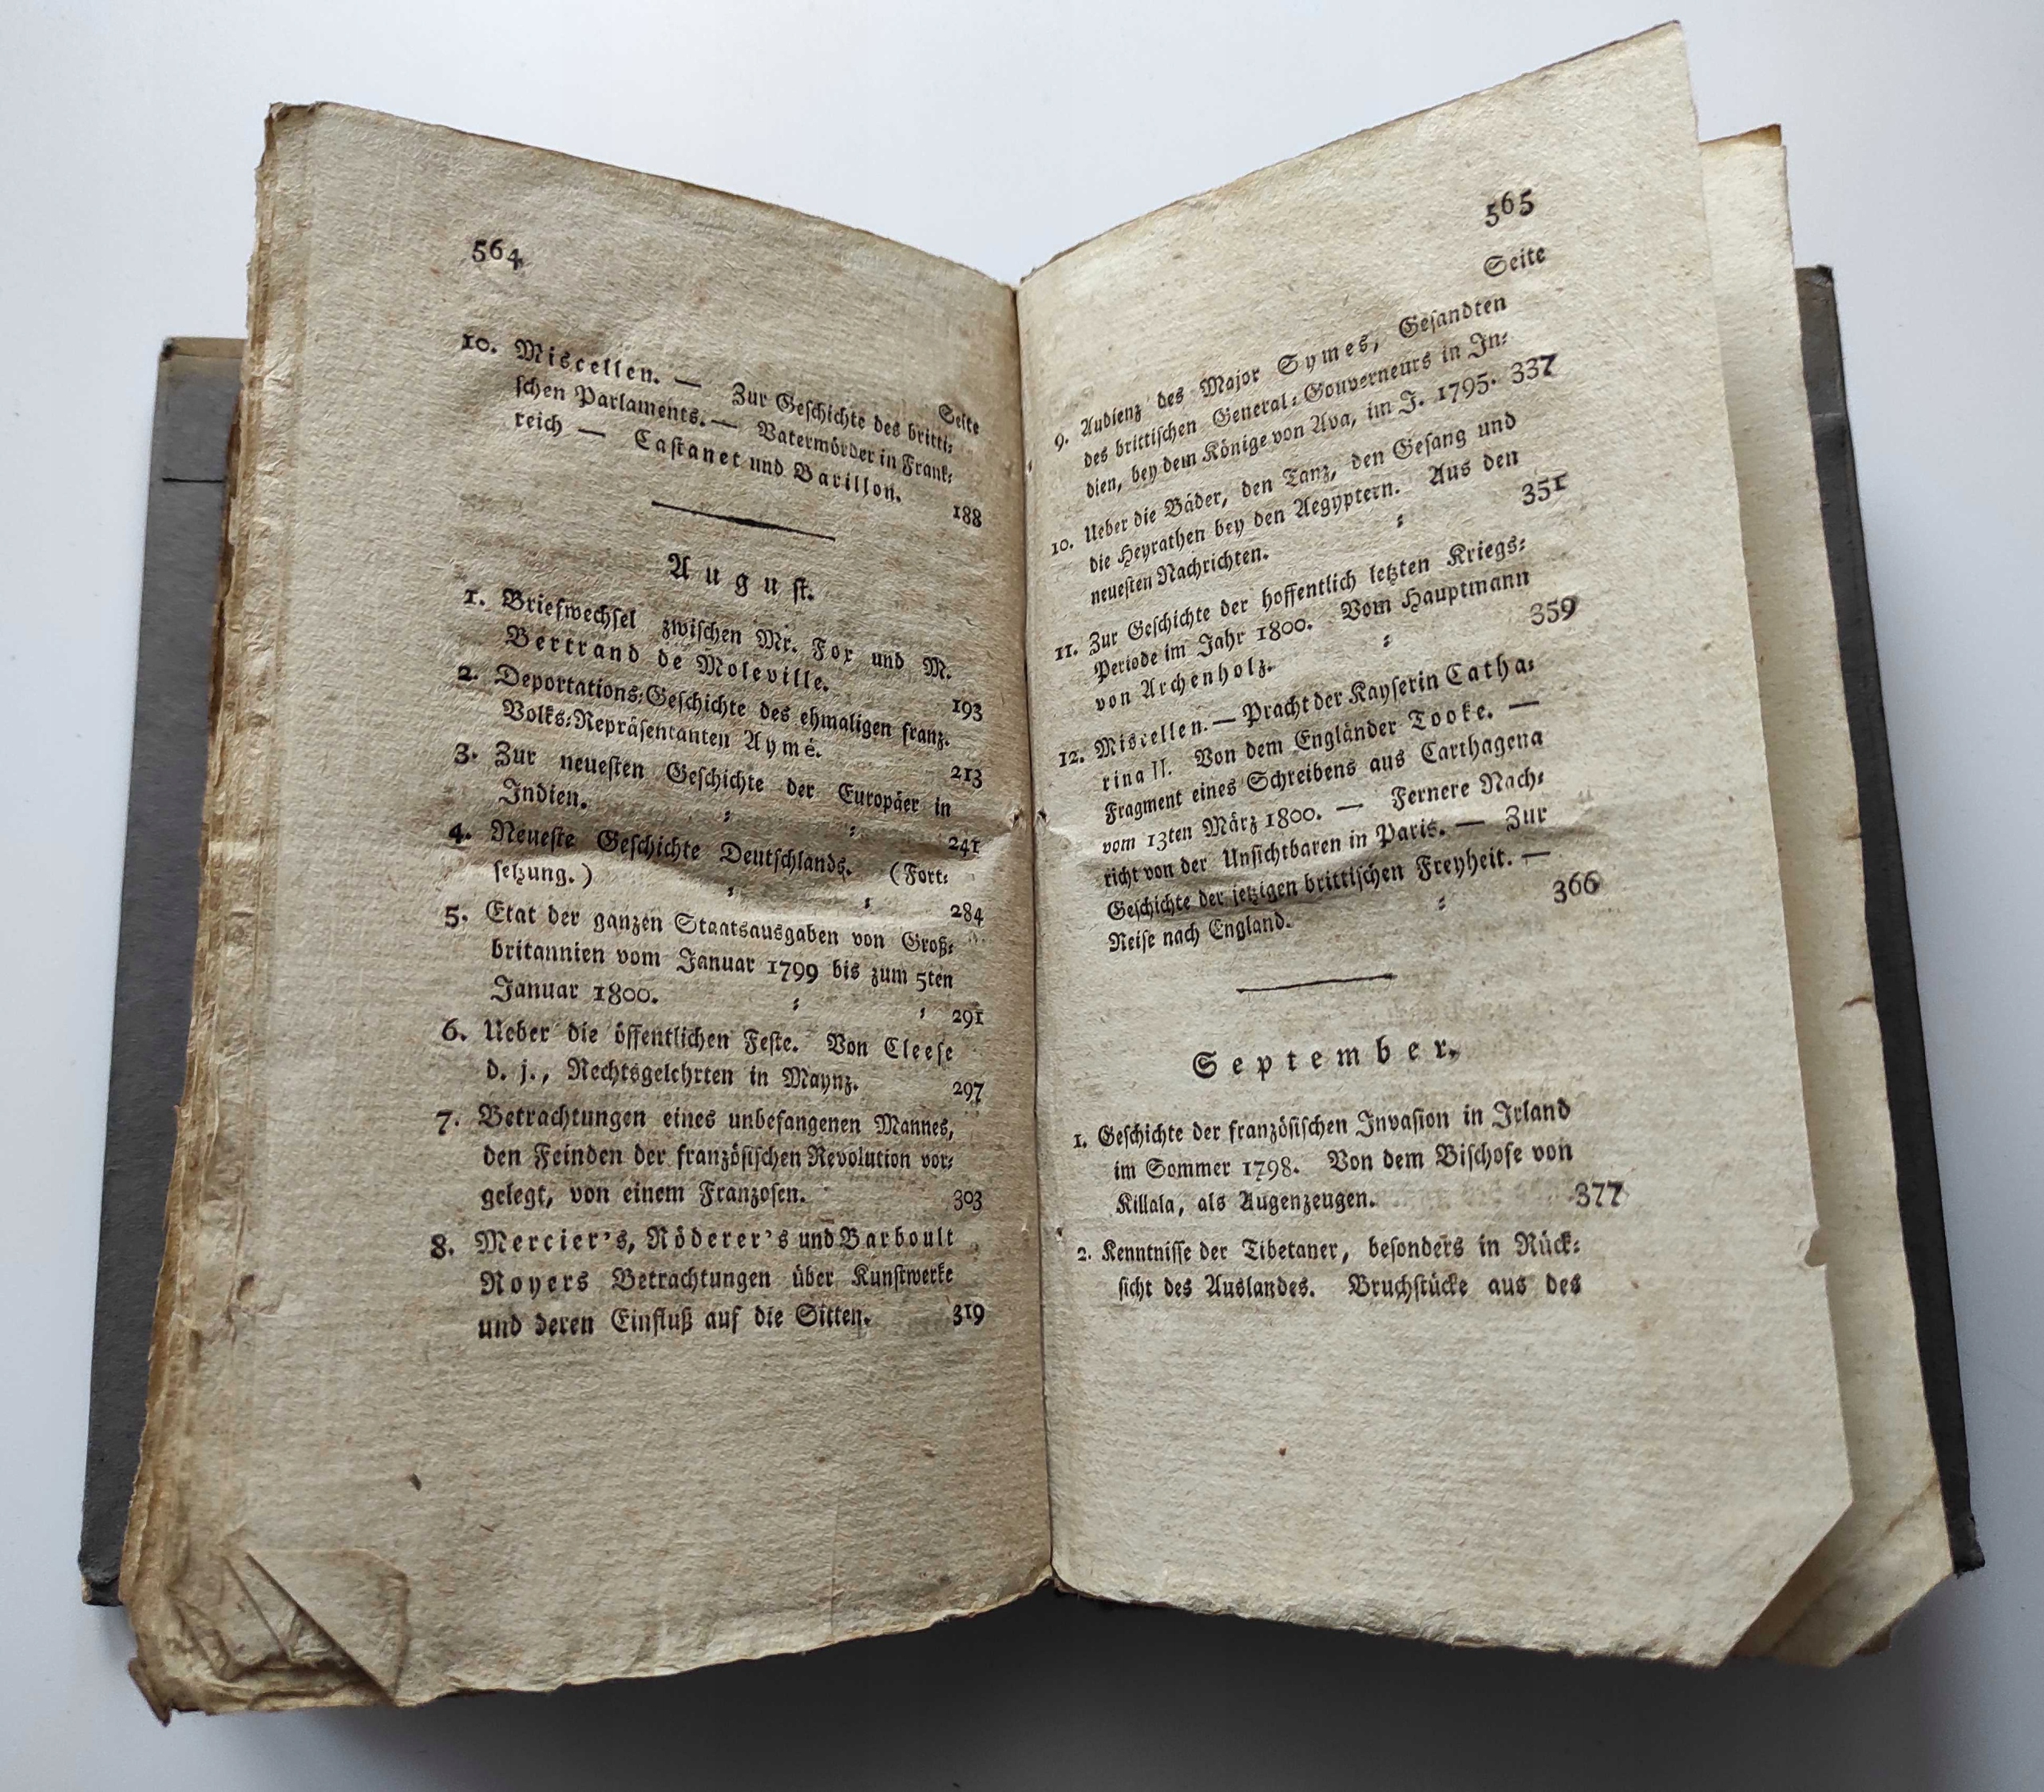 564
Seite
10. Miscellen. — Zur Geschichte des britti⸗
schen Parlaments. — Vatermörder in Frank⸗
reich — Castanet und Barillon. 188
August.
1. Briefwechsel zwischen Mr. Fox und M.
Bertrand de Moleville. 193
2. Deportations⸗Geschichte des ehmaligen franz.
Volks⸗Repräsentanten Aymé. 213
3. Zur neuesten Geschichte der Europäer in
Indien. ⸗ ⸗ 241
4. Neueste Geschichte Deutschlands. (Fort⸗
setzung.) ⸗ ⸗ 284
5. Etat der ganzen Staatsausgaben von Groß⸗
britannien vom Januar 1799 bis zum 5ten
Januar 1800. ⸗ ⸗ 291
6. Ueber die öffentlichen Feste. Von Cleese
d. j., Rechtsgelehrten in Maynz. 297
7. Betrachtungen eines unbefangenen Mannes,
den Feinden der französischen Revolution vor⸗
gelegt, von einem Franzosen. 303
8. Mercier's, Röderer's und Barboult
Royers Betrachtungen über Kunstwerke
und deren Einfluß auf die Sitten. 319
565
Seite
9. Audienz des Major Symes, Gesandten
des brittischen General⸗Gouverneurs in In⸗
dien, bey dem Könige von Ava, im J. 1795. 337
10. Ueber die Bäder, den Tanz, den Gesang und
die Heyrathen bey den Aegyptern. Aus den
neuesten Nachrichten. ⸗ 351
11. Zur Geschichte der hoffentlich letzten Kriegs⸗
Periode im Jahr 1800. Vom Hauptmann
von Archenholz. ⸗ 359
12. Miscellen. — Pracht der Kayserin Catha⸗
rina II. Von dem Engländer Tooke. —
Fragment eines Schreibens aus Carthagena
vom 13ten März 1800. — Fernere Nach⸗
richt von der Unsichtbaren in Paris. — Zur
Geschichte der jetzigen brittischen Freyheit. —
Reise nach England. ⸗ 366
September.
1. Geschichte der französischen Invasion in Irland
im Sommer 1798. Von dem Bischofe von
Killala, als Augenzeugen. 377
2. Kenntnisse der Tibetaner, besonders in Rück⸗
sicht des Auslandes. Bruchstücke aus des